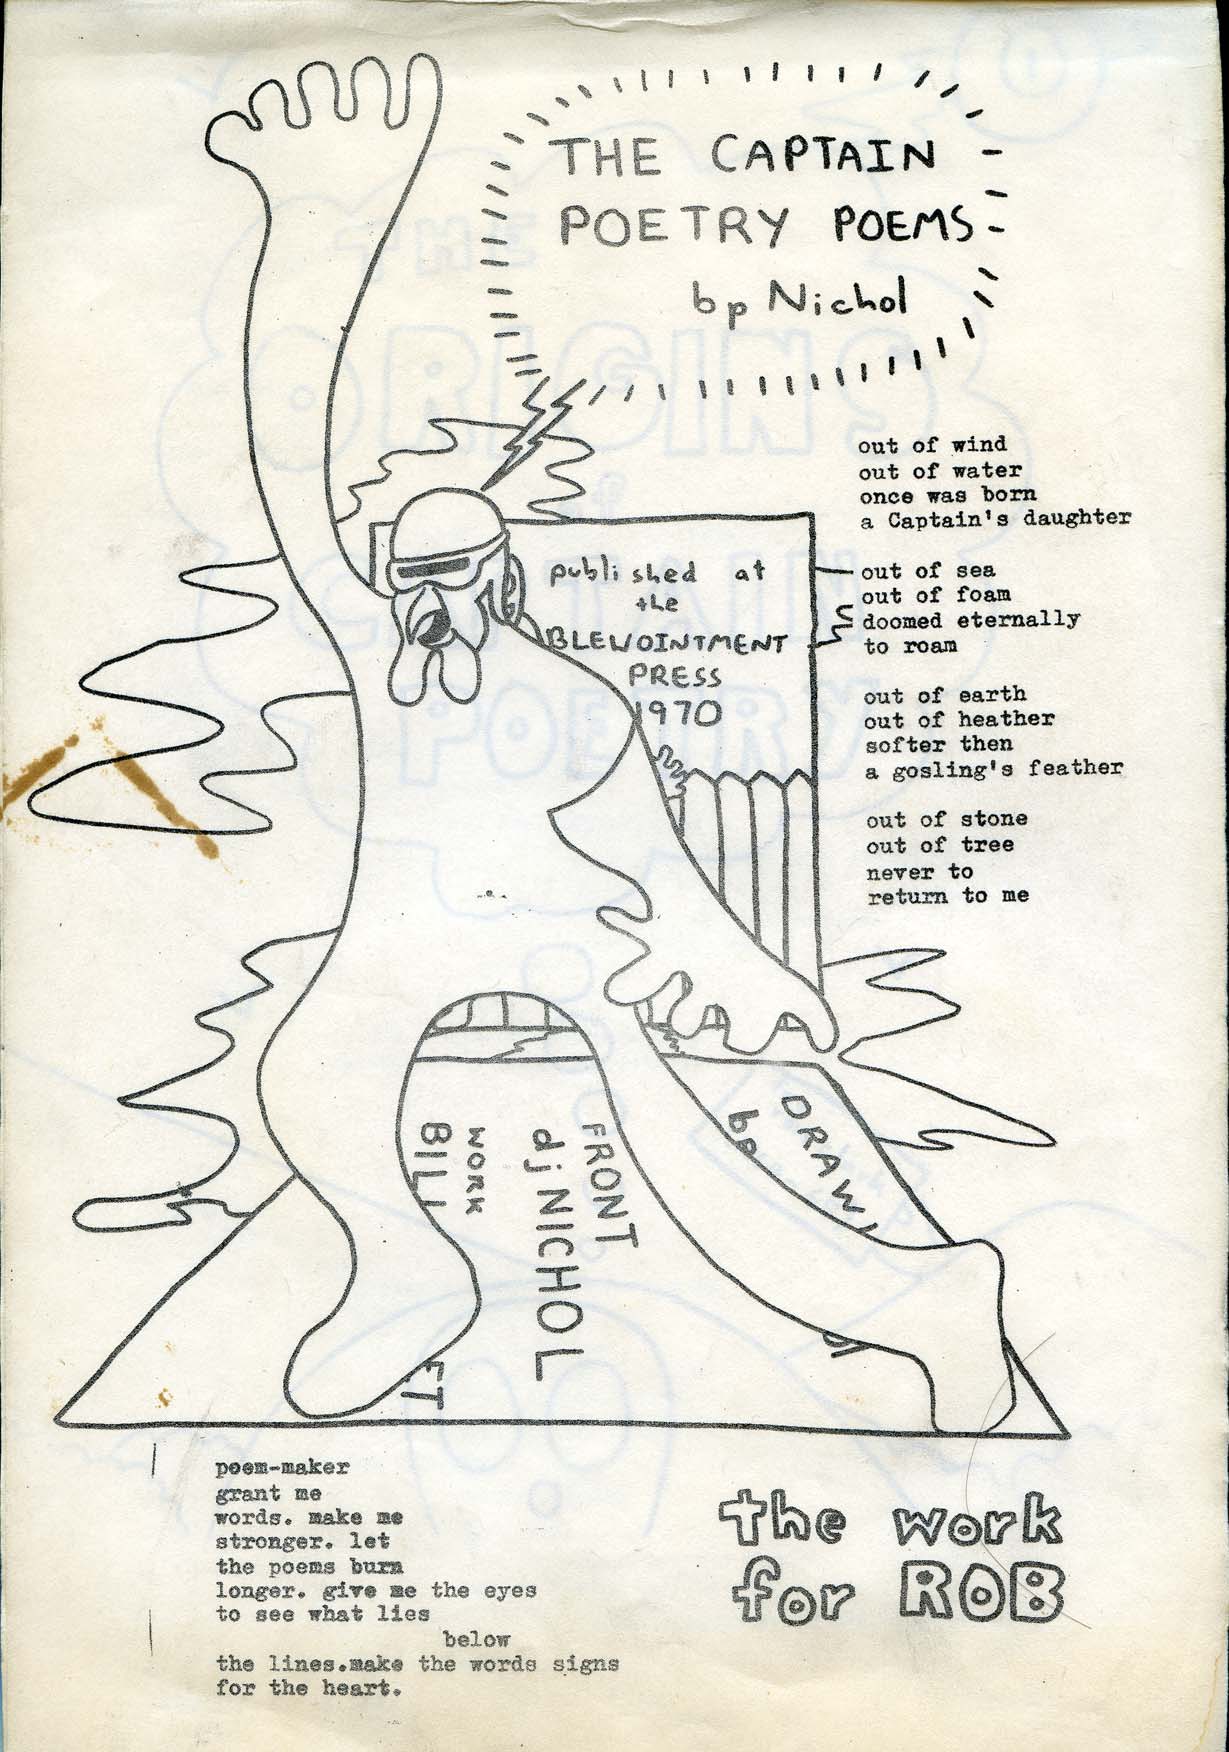 THE CAPTAIN
POETRY POEMS
bp Nichol
out of wind
out of water
once was born
a Captain's daughter
out of sea
out of foam
doomed eternally
to roam
out of earth
out of heather
softer then
a gosling's feather
out of stone
out of tree
never to
return to me
published at
the
BLEWOINTMENT
PRESS
1970
DRAW
bp
FRONT
dj NICHOL
WORK
BILL
ET
poem-maker
grant me
words. make me
stronger. let
the poems burn
longer. give me the eyes
to see what lies
below
the lines.make the words signs
for the heart.
the work
for ROB